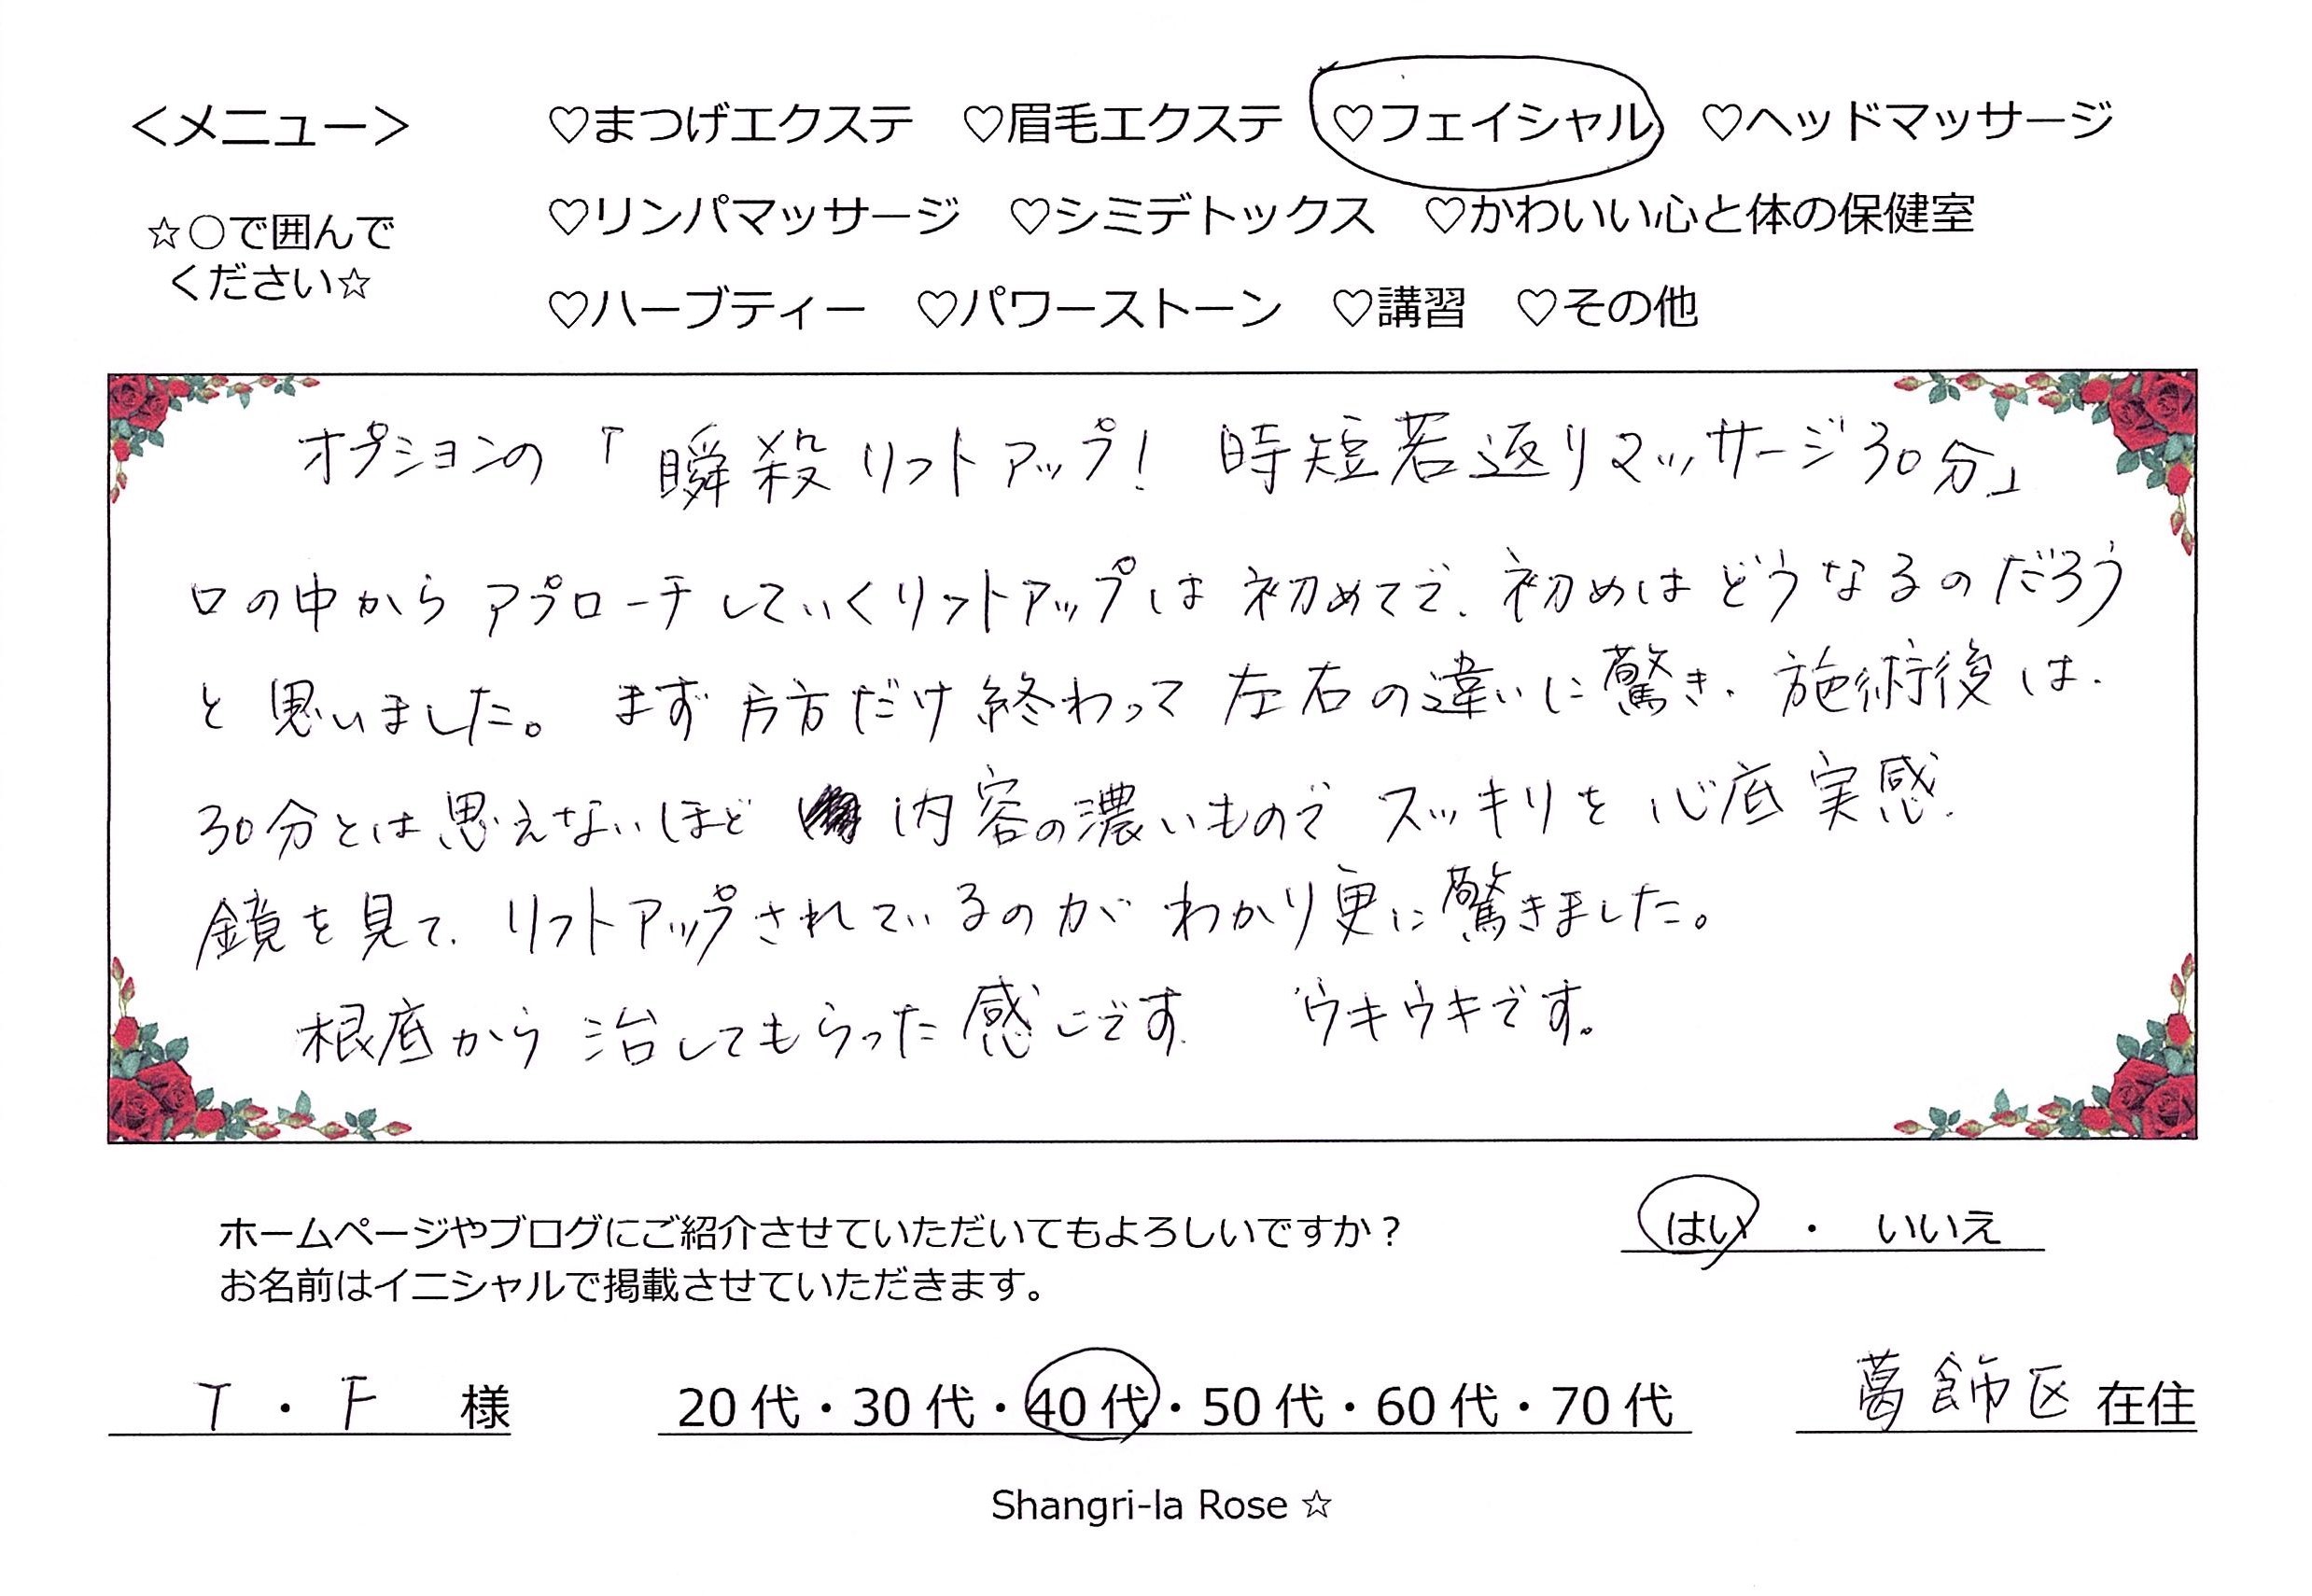 ＜メニュー＞ ♡まつげエクステ ♡眉毛エクステ ♡フェイシャル ♡ヘッドマッサージ
☆○で囲んで
ください☆
♡リンパマッサージ ♡シミデトックス ♡かわいい心と体の保健室
♡ハーブティー ♡パワーストーン ♡講習 ♡その他
オプションの「瞬殺リフトアップ! 時短若返りマッサージ30分」
口の中からアプローチしていくリフトアップは初めてで、初めはどうなるのだろう
と思いました。まず方方だけ終わって左右の違いに驚き、施術後は、
30分とは思えないほど内容の濃いものでスッキリを心底実感、
鏡を見て、リフトアップされているのがわかり更に驚きました。
根底から治してもらった感じです ウキウキです。
ホームページやブログにご紹介させていただいてもよろしいですか？ はい ・ いいえ
お名前はイニシャルで掲載させていただきます。
T・F 様 20代・30代・40代・50代・60代・70代 葛飾区在住
Shangri-la Rose ☆